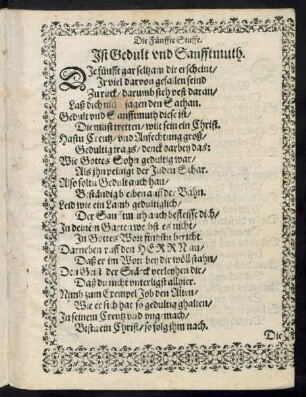 Die Fünffte Stuffe.
Ist Gedult vnd Sanfftmuth.
DIe fünfft gar seltzam dir erscheint/
Ir viel daruon gefallen seind
Zuruck/ darumb sieh vest daran/
Laß dich nit jagen den Sathan.
Gedult vnd Sanfftmuth diese ist/
Die must tretten/ wilt sein ein Christ.
Hastu Creutz/ vnd Anfechtung groß/
Gedultig trags/ denck darbey das:
Wie Gottes Sohn gedultig war/
Als jhn peinigt der Juden Schar.
Also soltu Gedult auch han/
Beständig bleiben auff der Bahn.
Leid wie ein Lamb gedultiglich/
Der Sanfftmuth auch befleisse dich/
In deinem Garten wechst es nicht/
In Gottes Wort findstu bericht.
Darneben ruff den HERRN an/
Daß er im Wort bey dir wöll stahn/
Den Geist der Stärck verleyhen dir/
Daß du nicht vnterligst allhier.
Nimb zum Exempel Job den Alten/
Wie er sich hat so gedultig ghalten/
In seinem Creutz vnd vngemach/
Bistu ein Christ/ so folg ihm nach.
Die